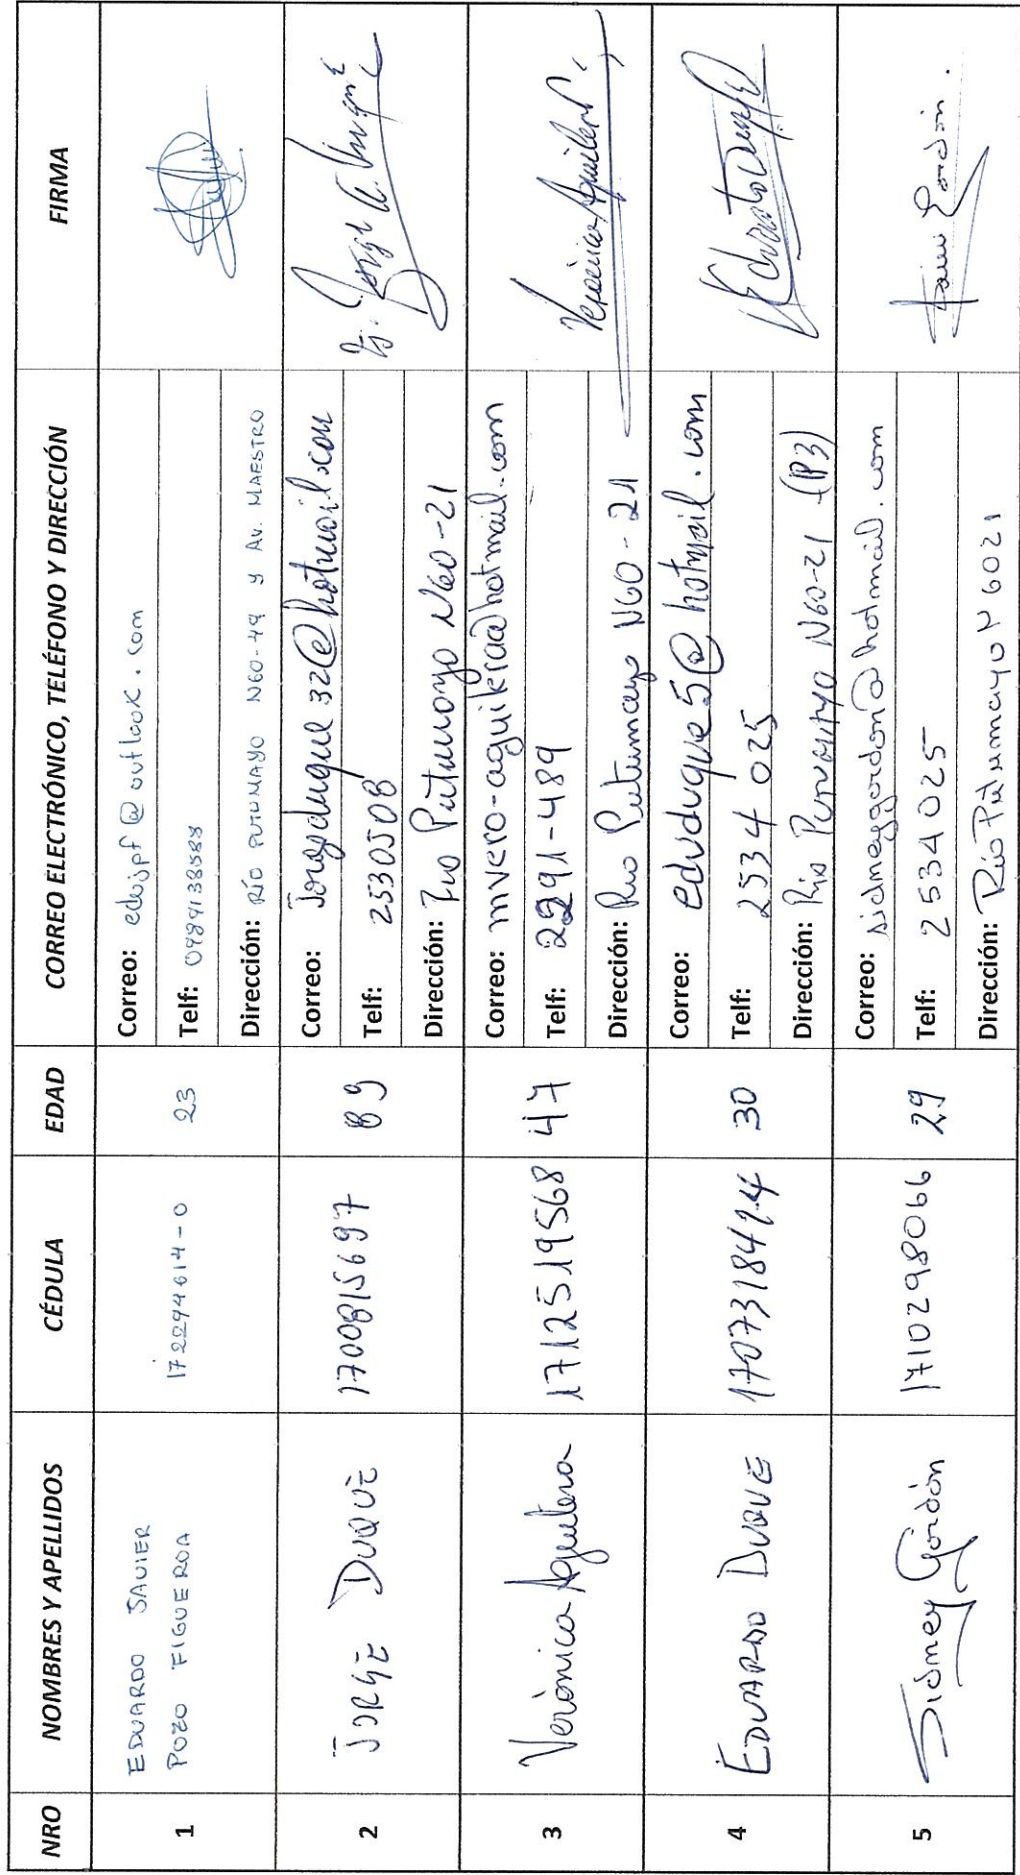 NRO NOMBRES Y APELLIDOS CÉDULA EDAD CORREO ELECTRÓNICO, TELÉFONO Y DIRECCIÓN FIRMA
1
EDUARDO JAVIER
POZO FIGUEROA
172294614-0
23
Correo: edujpf@outlook.com
Telf:
Dirección: RÍO PUTUMAYO N60-49 y AV. MAESTRO
2
JORGE DUQUE
1700815697
89
Correo: Jorgeduque32@hotmail.com
Telf: 2530508
Dirección: Rio Putumayo N60-21
Jorge Duque
3
Verónica Aguilera
1712519568
47
Correo: mvero-aguilera@hotmail.com
Telf: 2291-489
Dirección: Rio Putumayo N60-21
Verónica Aguilera
4
EDUARDO DUQUE
30
Correo: eduduque5@hotmail.com
Telf: 2534025
Dirección: Rio PUTUMAYO N60-21 (P3)
Eduardo Duque
5
Sidney Gordón
1710298066
29
Correo: sidneygordon@hotmail.com
Telf: 2534025
Dirección: Río Putumayo N6021
Gordón.